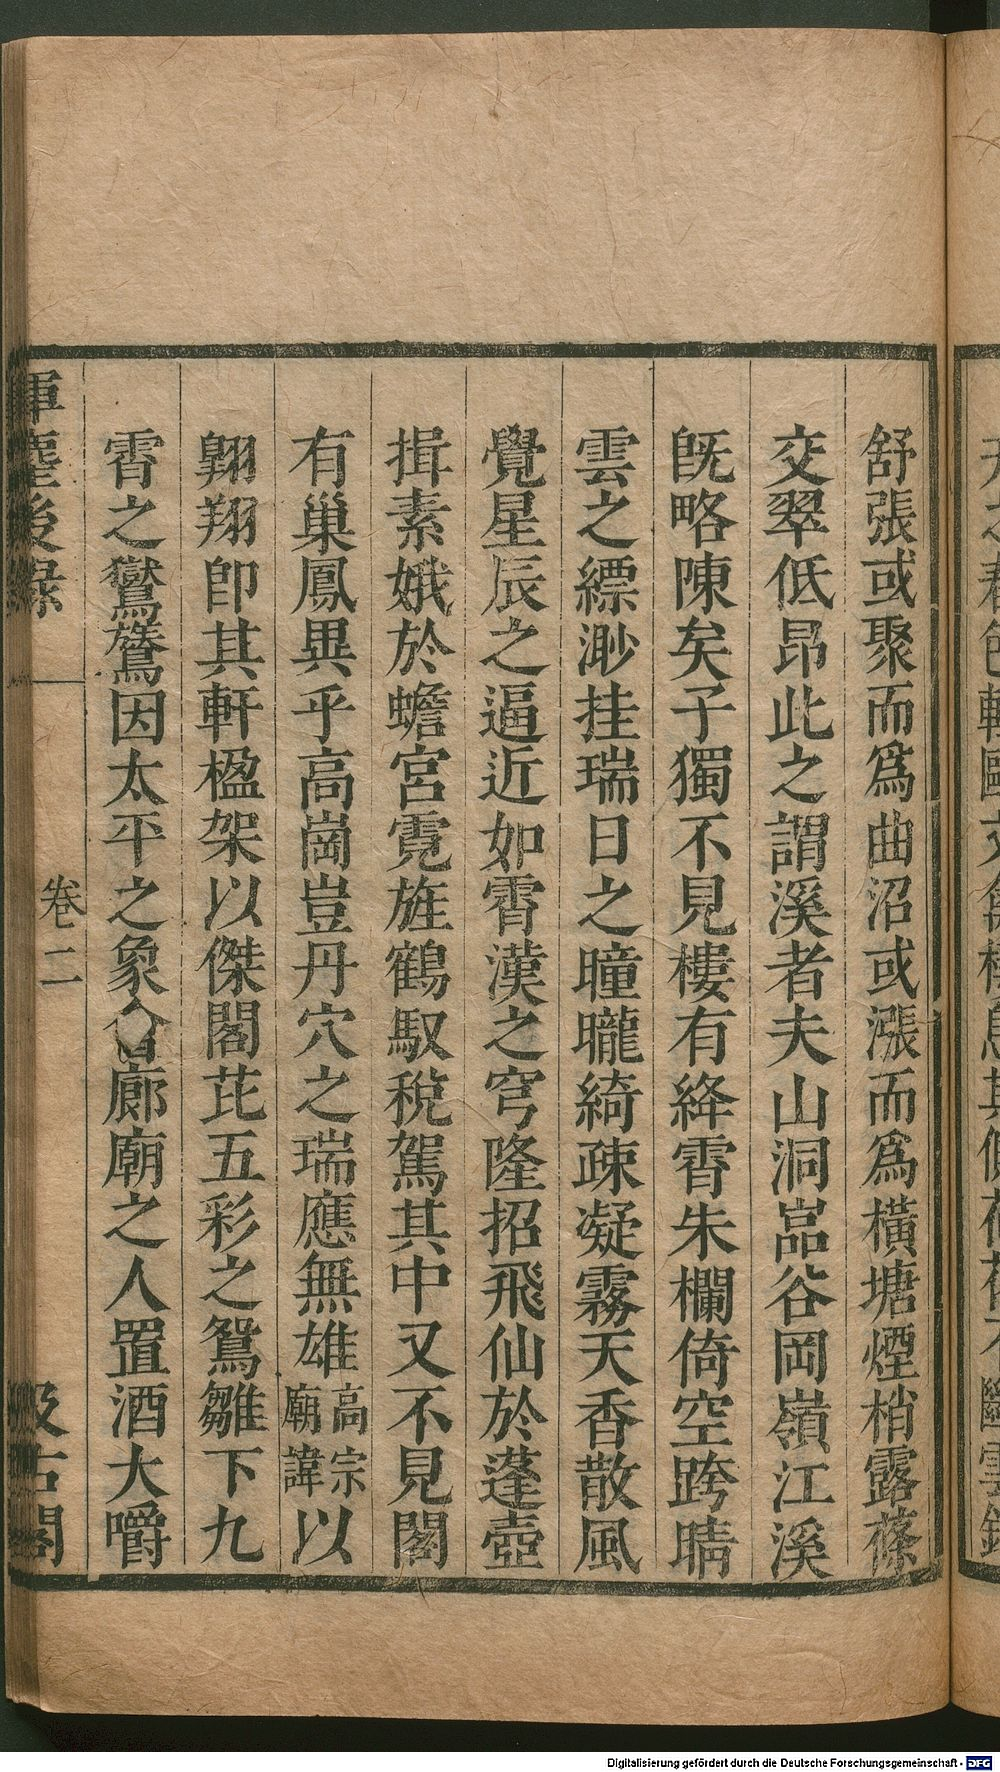 舒張或聚而爲曲沼或漲而爲橫塘煙梢露蓧
交翠低昂此之謂溪者夫山洞嵓谷岡嶺江溪
旣略陳矣子獨不見樓有絳霄朱欄倚空跨晴
雲之縹渺挂瑞日之曈曨綺疎凝霧天香散風
覺星辰之逼近如霄漢之穹隆招飛仙於蓬壺
揖素娥於蟾宮霓旌鶴馭稅駕其中又不見閣
有巢鳳異乎高崗豈丹穴之瑞應無雄高宗廟諱以
翺翔卽其軒楹架以傑閣芘五彩之鴛雛下九
霄之鸑鷟因太平之象會廊廟之人置酒大嚼
揮塵後錄 卷二 汲古閣
幽雲錦
Digitalisierung gefördert durch die Deutsche Forschungsgemeinschaft - DFG